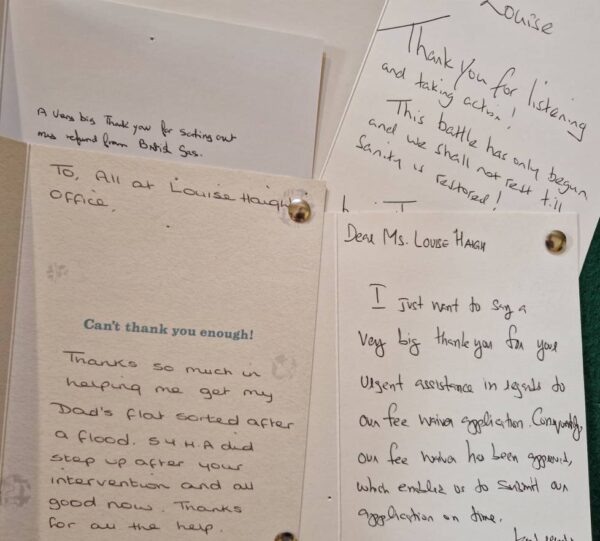 A very big Thank you for sorting out
mus refund from British Gas.
Louise
Thank You for listening
and taking action!
This battle has only begun
and we shall not rest till
Sanity is restored!
To, All at Louise Haigh
Office,
Can't thank you enough!
Thanks so much in
helping me get my
Dad's flat sorted after
a flood. S Y H.A did
step up after your
intervention and all
good now. Thanks
for all the help.
Dear Ms. LOUISE HAIGH
I just want to say a
Very big thank you for your
Urgent assistance in regards to
our fee waiver application. Consequently,
our fee waiver has been approved,
which enables us to submit our
application on time.